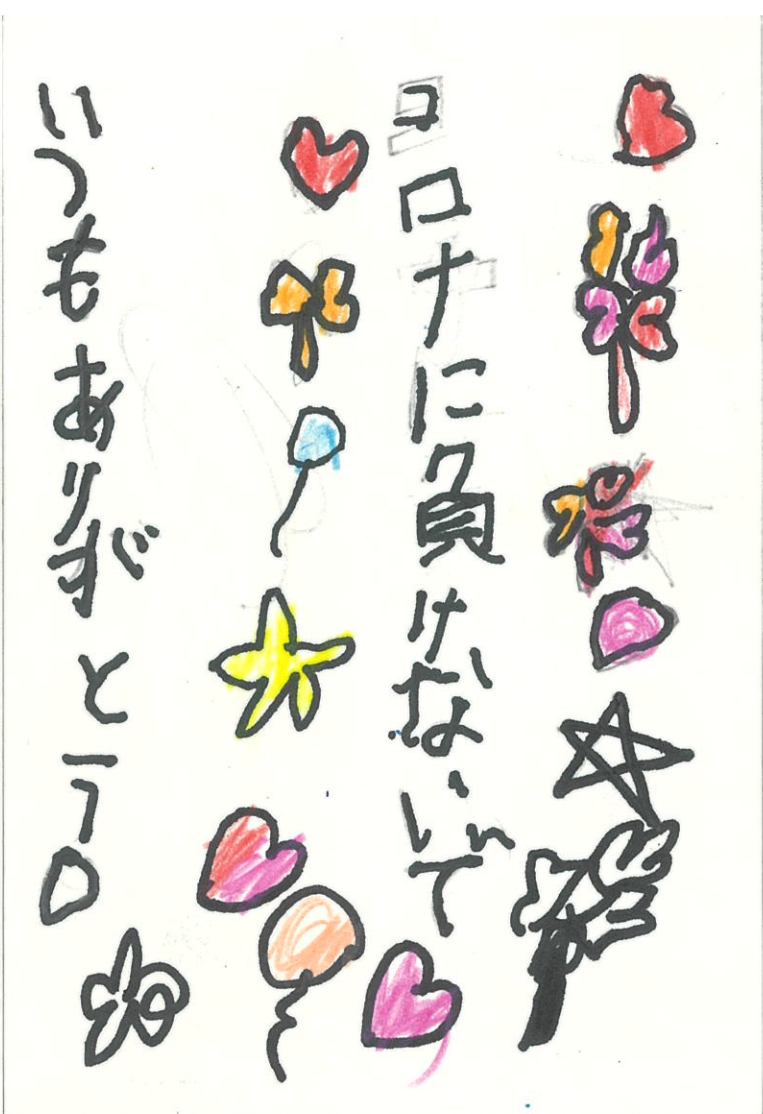 コロナに負けないで
いつもありがとう。